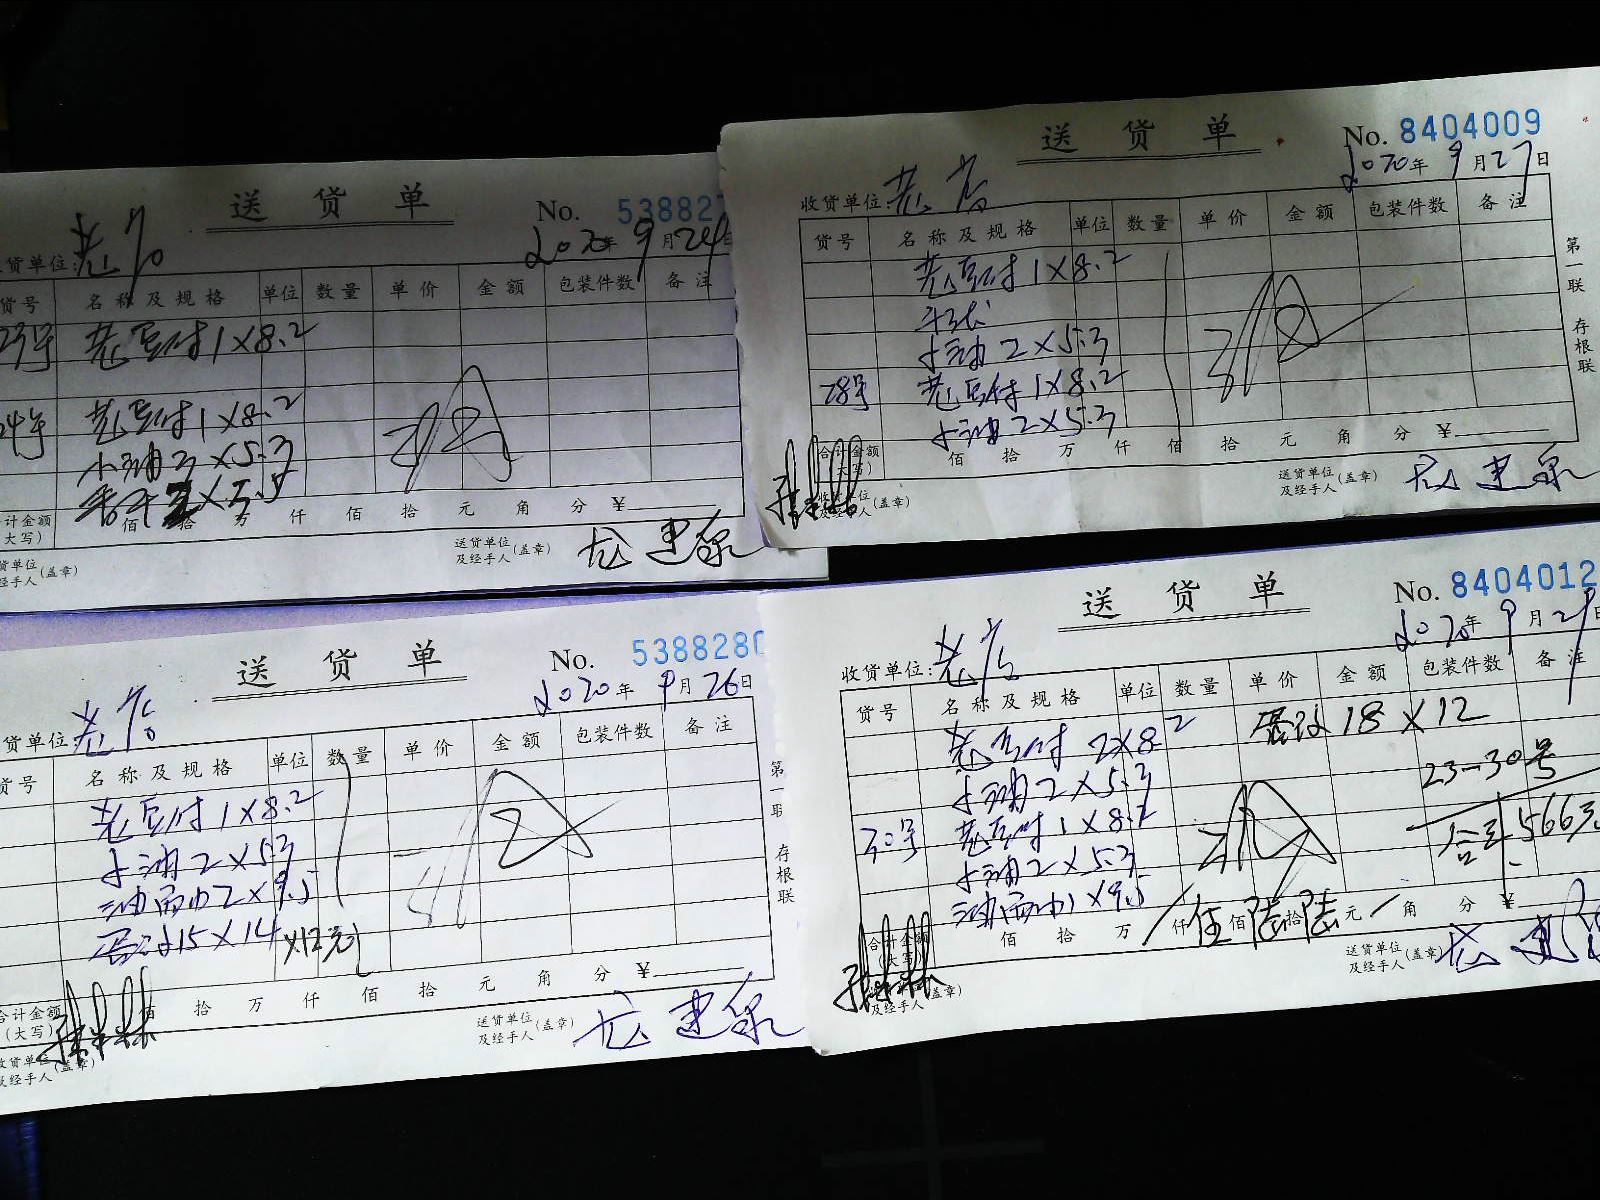 送货单
No. 53882
2020年9月24日
货单位:老店
货号 名称及规格 单位 数量 单价 金额 包装件数 备注
23号 老豆付1×8.2
24号 老豆付1×8.2
小油3×5.3
×5.5
计金额
(大写)
佰 拾 万 仟 佰 拾 元 角 分 ¥
货单位
经手人(盖章)
送货单位
及经手人(盖章)
送货单
No. 8404009
2020年9月27日
收货单位:老店
货号 名称及规格 单位 数量 单价 金额 包装件数 备注
老豆付1×8.2
卜油2×5.3
28号 老豆付1×8.2
卜油2×5.3
合计金额
(大写)
佰 拾 万 仟 佰 拾 元 角 分 ¥
收货单位
及经手人(盖章)
送货单位
及经手人(盖章)
第一联 存根联
送货单
No. 5388280
2020年9月26日
货单位:老店
货号 名称及规格 单位 数量 单价 金额 包装件数 备注
老豆付1×8.2
卜油2×5.3
油面巾2×9.5
15×14 ×12元
合计金额
(大写)
佰 拾 万 仟 佰 拾 元 角 分 ¥
收货单位
及经手人(盖章)
送货单位
及经手人(盖章)
第一联 存根联
送货单
No. 8404012
2020年9月29日
收货单位:老店
货号 名称及规格 单位 数量 单价 金额 包装件数 备注
老豆付2×8.2 18×12
卜油2×5.3 23-30号
30号 老豆付1×8.2 合计566元
卜油2×5.3
油面巾1×9.5
合计金额
(大写)
佰 拾 万 仟 伍 佰 陆 拾 陆 元 角 分 ¥
及经手人(盖章)
送货单位
及经手人(盖章)